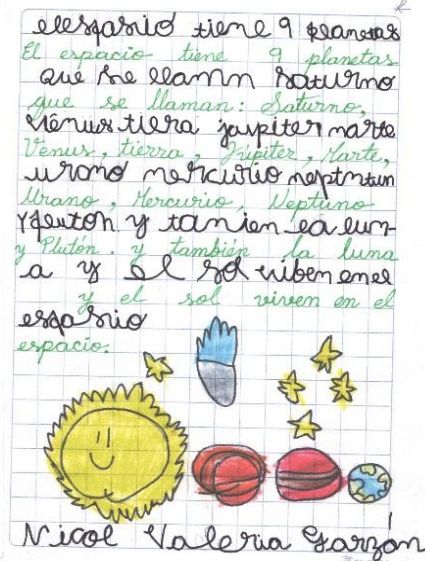 elespasio tiene 9 planetas
El espacio tiene 9 planetas
que se llamn saturno
que se llaman: Saturno,
vienus tiera jaupiter marte
Venus, tierra, Júpiter, Marte,
urano mercurio neptntun
Urano, Mercurio, Neptuno
y pluton y tanien la lun-
y Plutón. y también la luna
a y el sol viben en el
y el sol viven en el
espasio
espacio.
Nicol Valeria Garzón